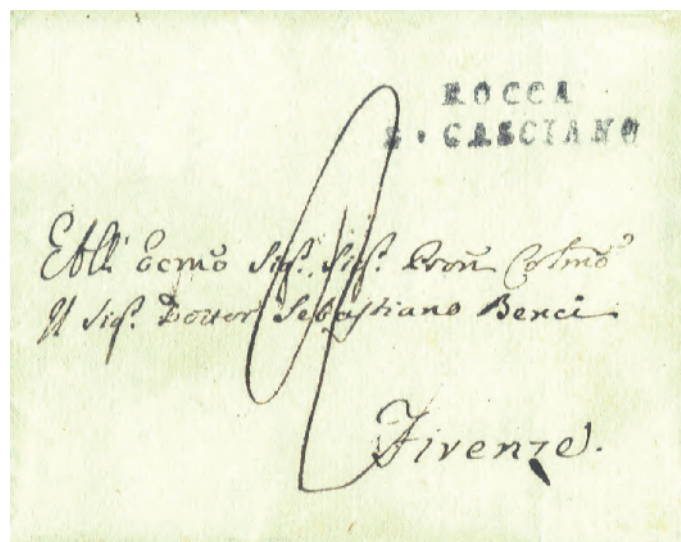 ROCCA
S. CASCIANO
All' Ecmõ Sig.r Sig.r Pron Colmõ
Il Sig.r Dottor Sebastiano Benci
Firenze.